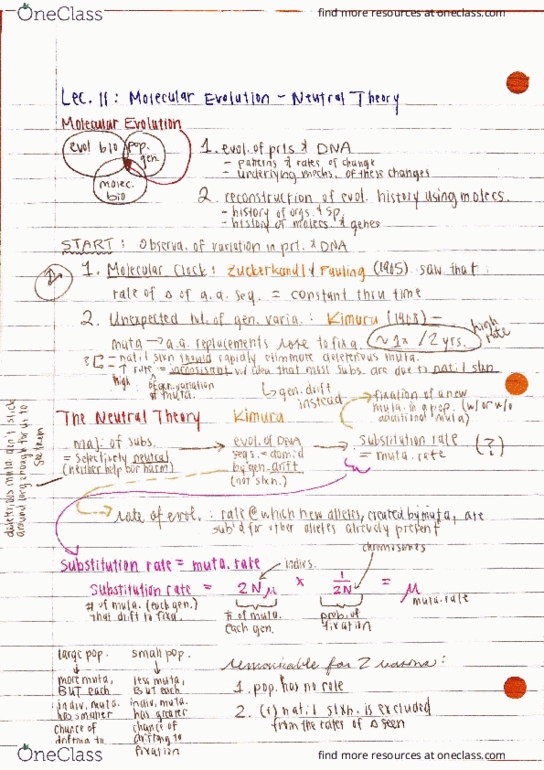 OneClass
find more resources at oneclass.com
Lec. 11: Molecular Evolution - Neutral Theory
Molecular Evolution
evol bio
pop. gen
molec. bio
1. evol. of prts & DNA
- patterns & rates of change
- underlying mechs. of these changes
2. reconstruction of evol. history using molecs.
- history of orgs. & sp.
- history of molecs. & genes
START: Observa. of variation in prt. & DNA
1. Molecular Clock: Zuckerkandl & Pauling (1965) saw that
rate of Δ of a.a. seq. = constant thru time
2. Unexpected lvl. of gen. varia.: Kimura (1968) -
muta → a.a. replacements rose to fixa. ~1x/2 yrs.
high rate
- nat'l slxn should rapidly elimm more deleterious muta.
- ↑ rate = inconsistent w/ idea that most subs. are due to nat'l slxn
high
of gen. variation & muta.
↳ gen. drift instead
fixation of a new
muta. in a pop. (w/ or w/o
additional muta)
The Neutral Theory Kimura
maj. of subs.
= selectively neutral
(neither help nor harm)
→ evol. of DNA
seqs. = dom'd
by gen. drift
(not slxn.)
→ substitution rate
= muta. rate
(?)
deleterious muta don't stick
around long enough for us to
see them
rate of evol.: rate @ which new alleles, created by muta, are
sub'd for other alleles already present
Substitution rate = muta. rate
indivs.
chromosomes
Substitution rate = 2Nμ x 1/2N = μ
muta. rate
# of muta. (each gen.)
that drift to fixa.
# of muta.
each gen.
prob. of
fixation
large pop.
↓
more muta,
BUT each
indiv. muta.
has smaller
chance of
drifting to
small pop.
↓
less muta,
BUT each
indiv. muta.
has greater
chance of
drifting to
fixation
remarkable for 2 reasons:
1. pop. has no role
2. (+) nat'l slxn. is excluded
from the rates of Δ seen
find more resources at oneclass.com
OneClass